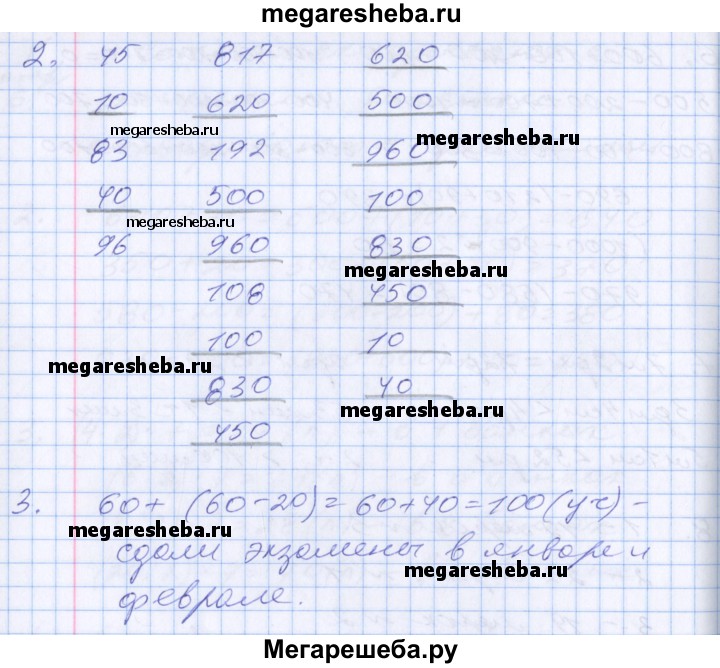 megaresheba.ru
2. 45 817 620
10 620 500
megaresheba.ru
megaresheba.ru
83 192 960
40 500 100
megaresheba.ru
96 960 830
megaresheba.ru
108 450
100 10
megaresheba.ru
830 40
megaresheba.ru
450
3. 60 + (60 - 20) = 60 + 40 = 100 (уч) -
megaresheba.ru
сдали экзамены в январе и
megaresheba.ru
феврале.
Мегарешеба.ру